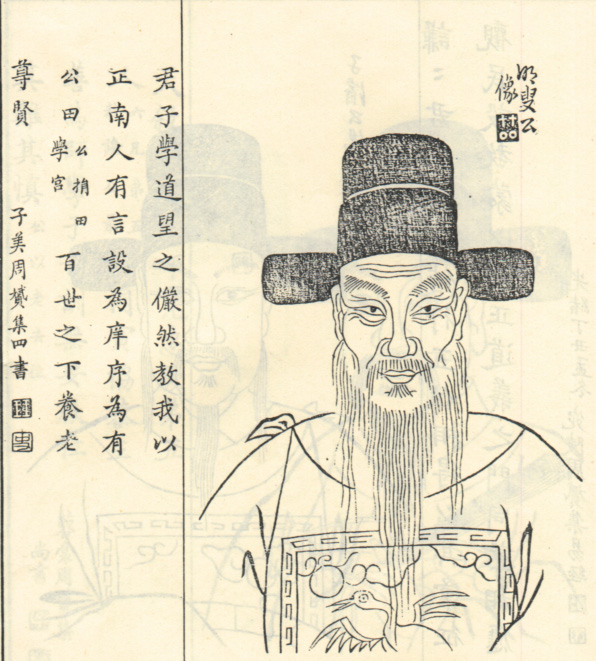 明叟公
像
君子學道望之儼然教我以
正南人有言設為庠序為有
公田
公捐田
學宮
百世之下養老
尊賢
子美周贇集四書